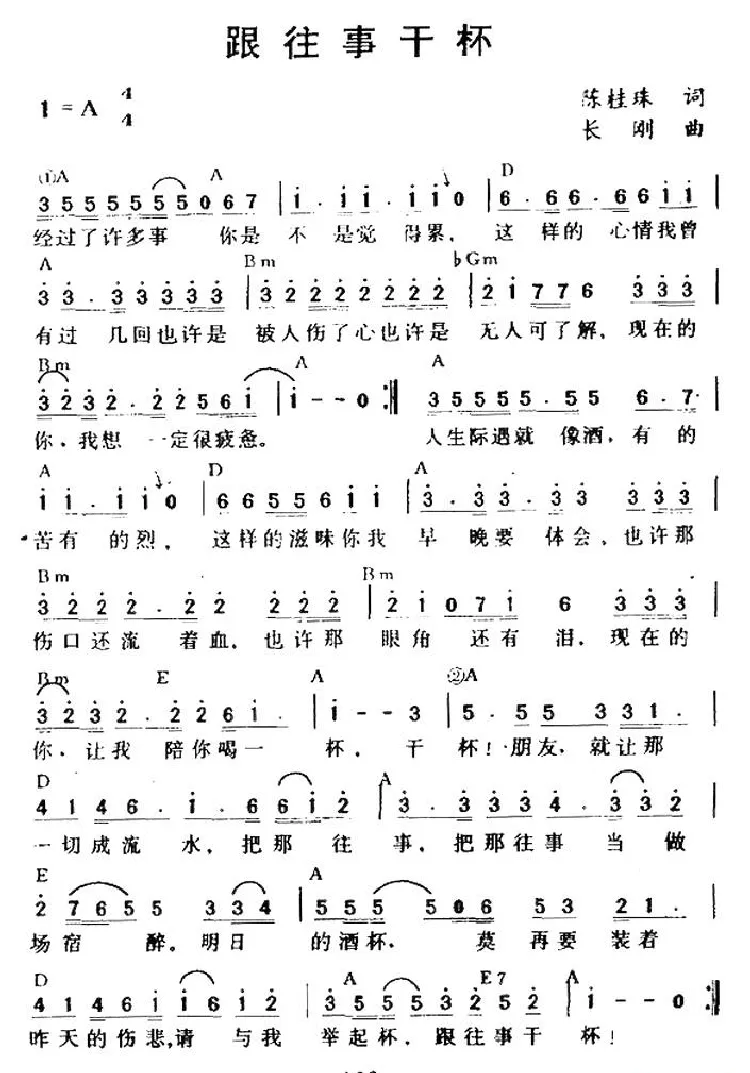 跟往事干杯
1=A 4/4
陈桂珠 词
长 刚 曲
(1)A A D
3 5 5 5 5 5 5 5 0 6 7 | i· i i· i i 0 | 6· 6 6· 6 6 i i |
经过了许多事 你是 不 是觉 得累, 这 样的 心情我曾
A Bm ♭Gm
3 3· 3 3 3 3 3 | 3 2 2 2 2 2 2 2 | 2 i 7 7 6 3 3 3 |
有过 几回也许是 被人伤了心也许是 无人可了解, 现在的
Bm A A
3 2 3 2· 2 2 5 6 i | i--0 :| 3 5 5 5 5· 5 5 6· 7·
你,我想 一定很疲惫。 人生际遇就 像酒,有 的
A D A
i i· i i 0 | 6 6 5 5 6 i i | 3· 3 3· 3 3 3 3
苦有 的烈, 这样的滋味你我 早 晚要 体会,也许那
Bm Bm
3 2 2 2· 2 2 2 2 2 | 2 i 0 7 i 6 3 3 3 |
伤口还流 着血,也许那 眼角 还有 泪,现在的
Bm E A ②A
3 2 3 2· 2 2 6 i· | i--3 | 5· 5 5 3 3 1· |
你,让我 陪你喝一 杯, 干 杯!朋友,就让那
D A
4 1 4 6· i· 6 6 i 2 | 3· 3 3 3 4· 3 3 2 |
一切成流 水,把那 往 事,把那往事 当 做
E A
2 7 6 5 5 3 3 4 | 5 5 5 5 0 6 5 3 2 1· |
一场宿 醉。明日 的酒杯, 莫 再要 装着
D A E7 A
4 1 4 6 i i 6 i 2 | 3 5 5 5 3 2 5 2 | i--0 :|
昨天的伤悲,请 与我 举起杯,跟往事干 杯!